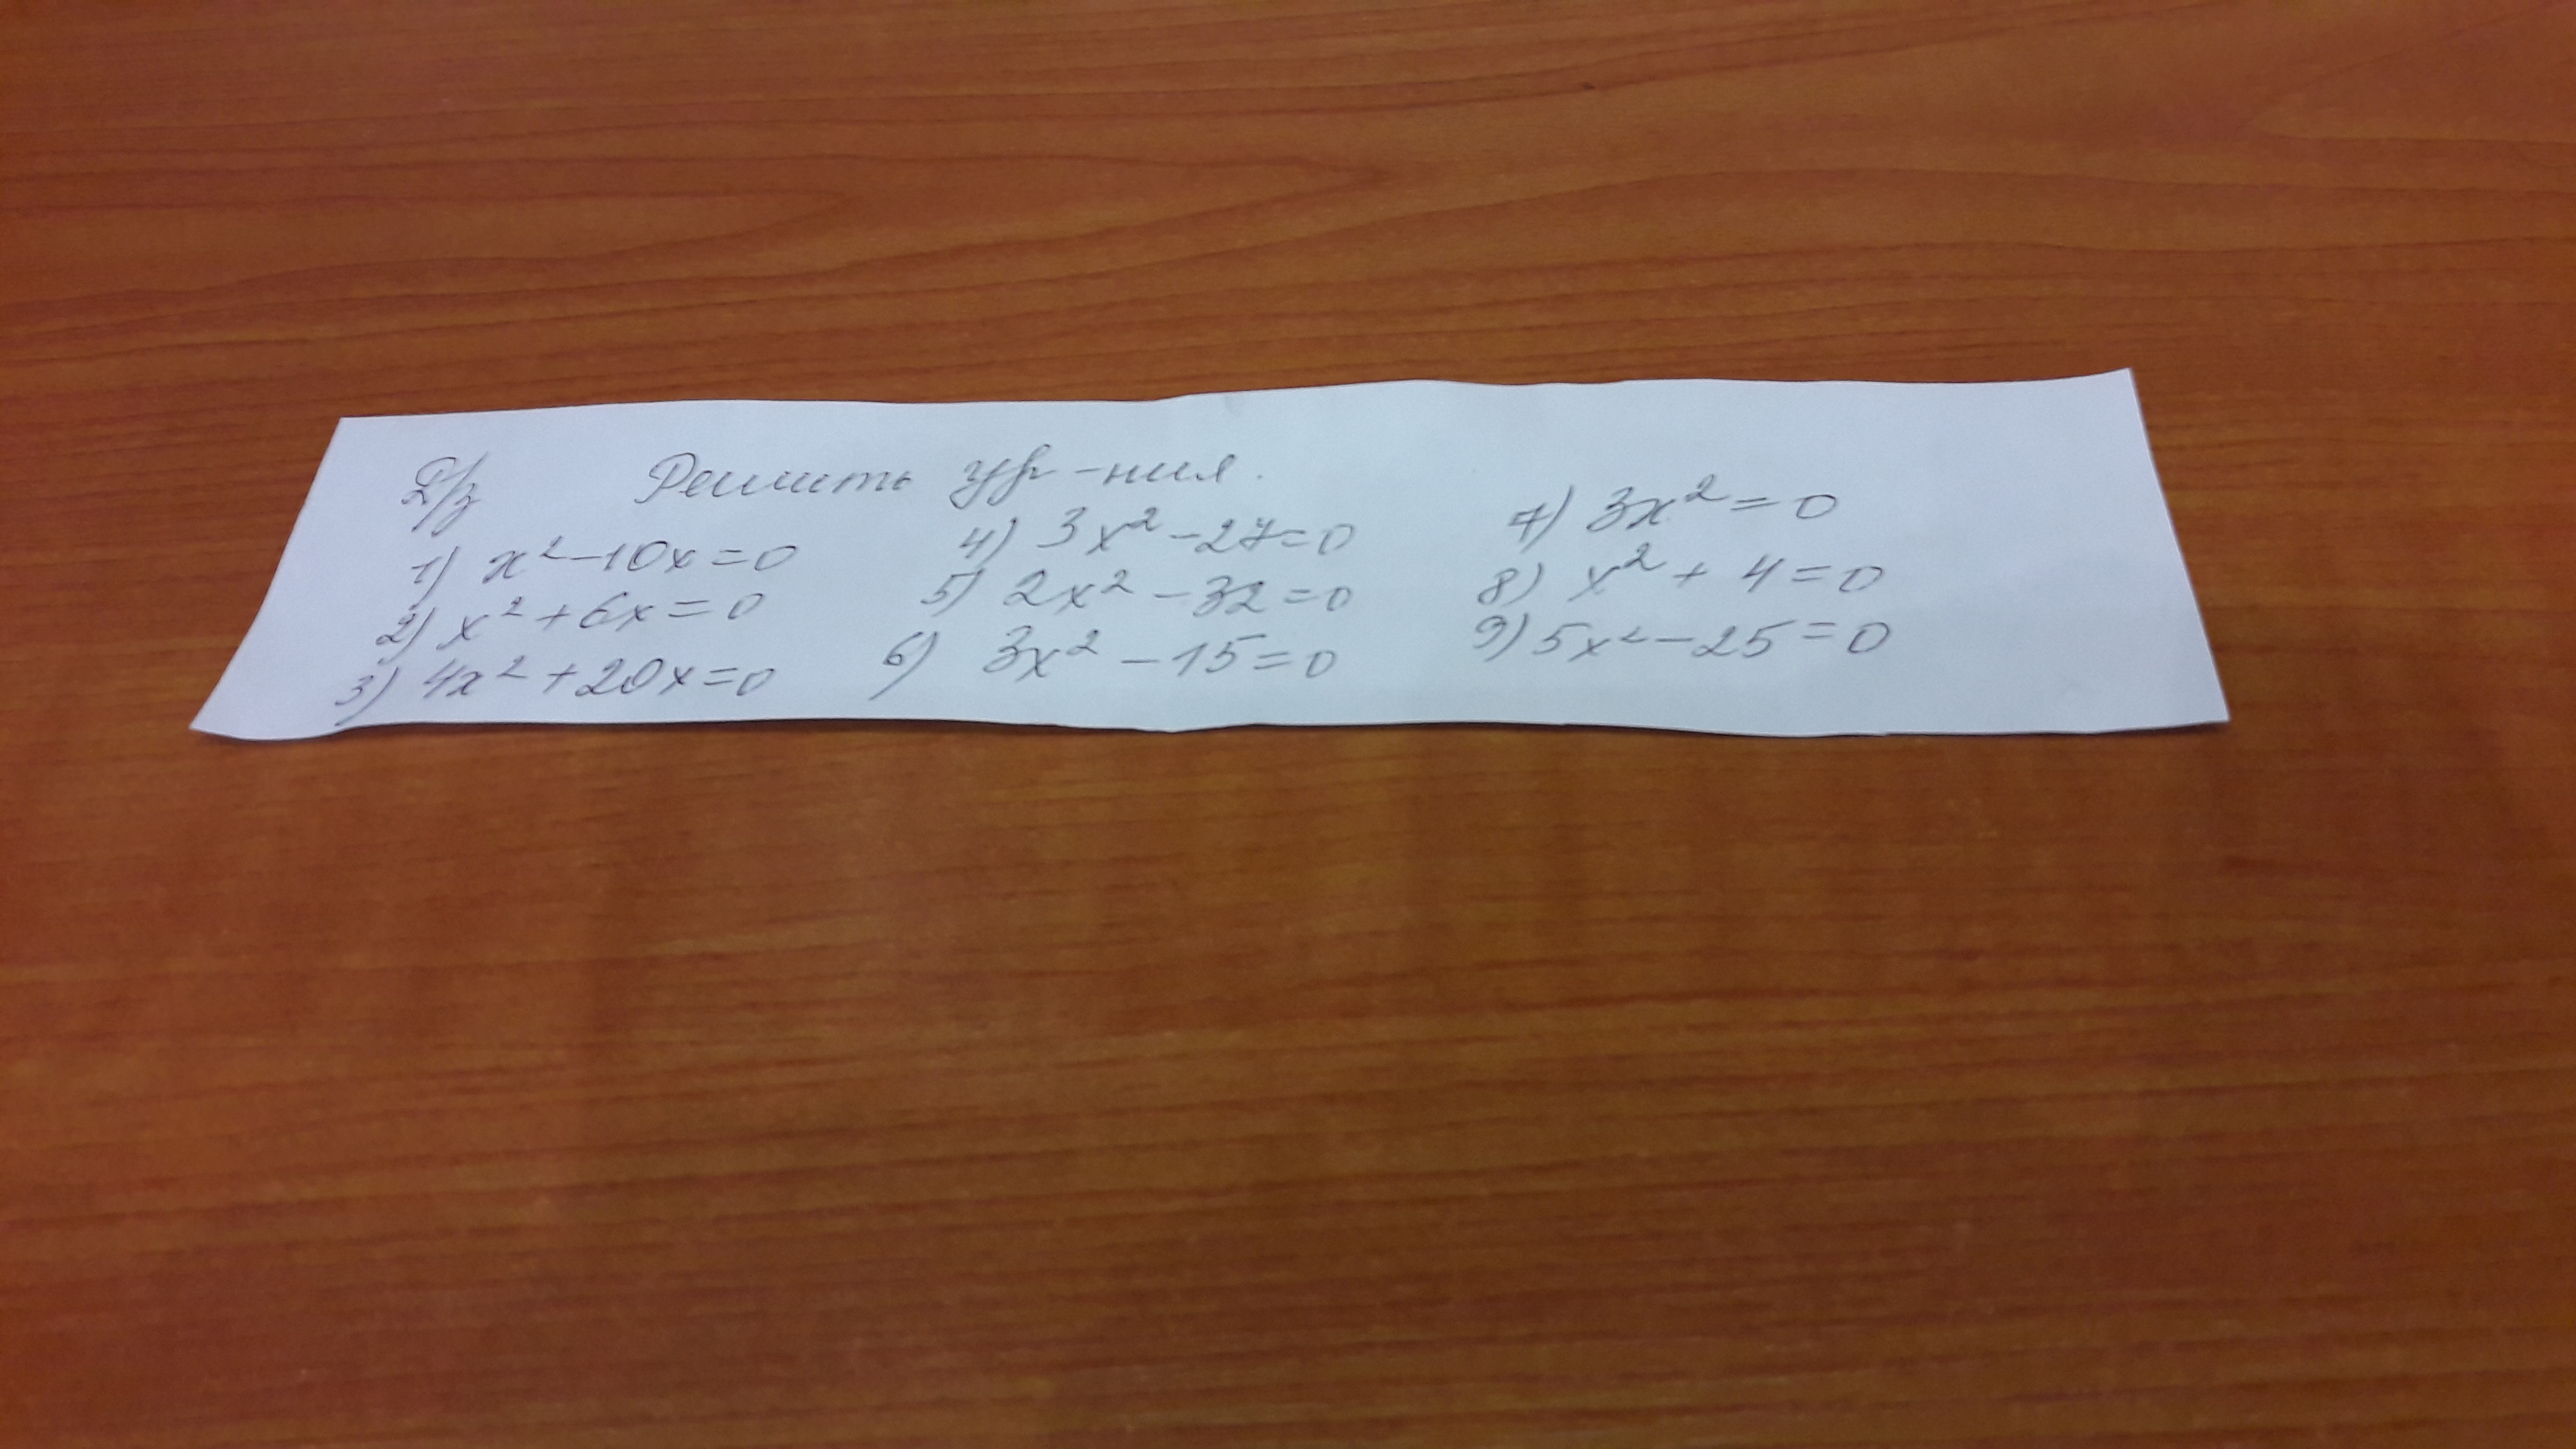 Д/з Решить ур-ния.
1) x² - 10x = 0
2) x² + 6x = 0
3) 4x² + 20x = 0
4) 3x² - 27 = 0
5) 2x² - 32 = 0
6) 3x² - 15 = 0
7) 3x² = 0
8) x² + 4 = 0
9) 5x² - 25 = 0